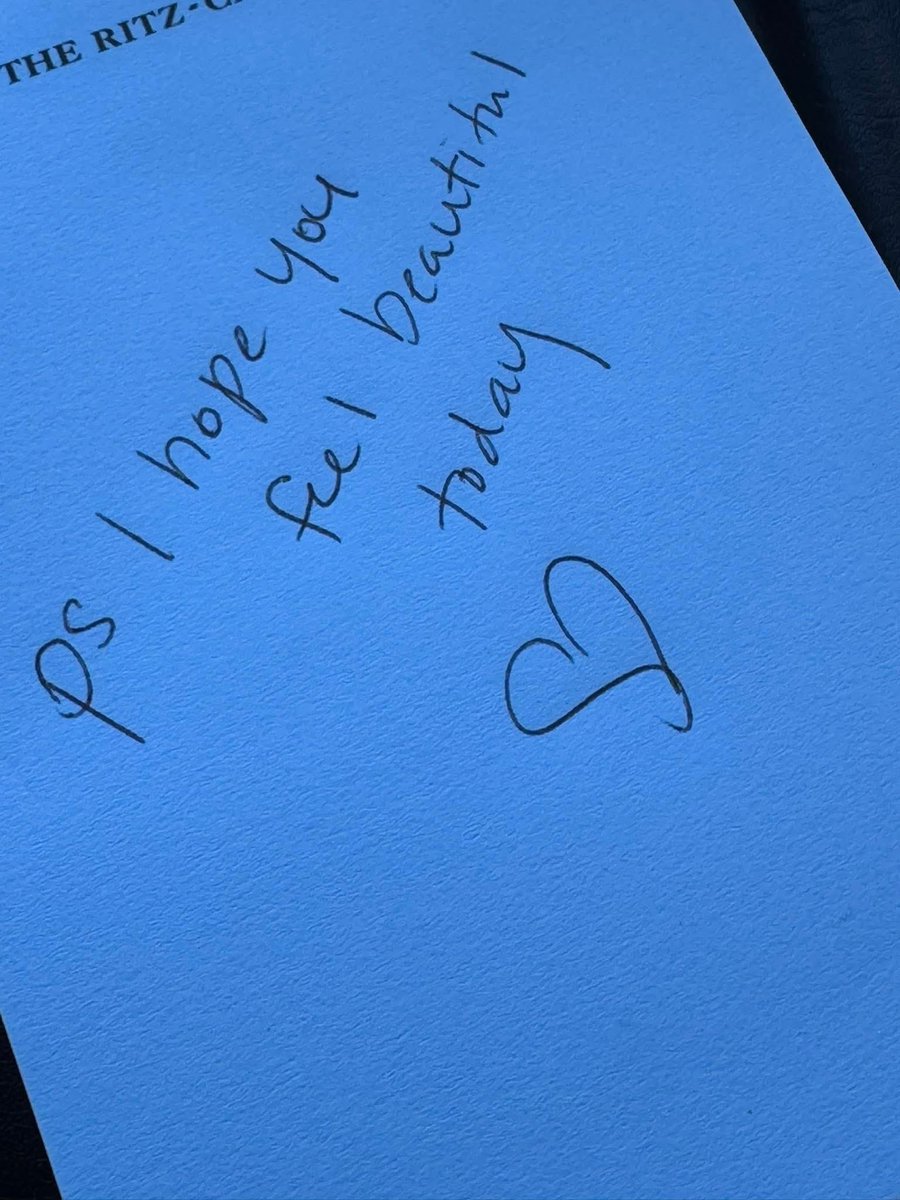 THE RITZ-C
ps I hope you
feel beautiful
today